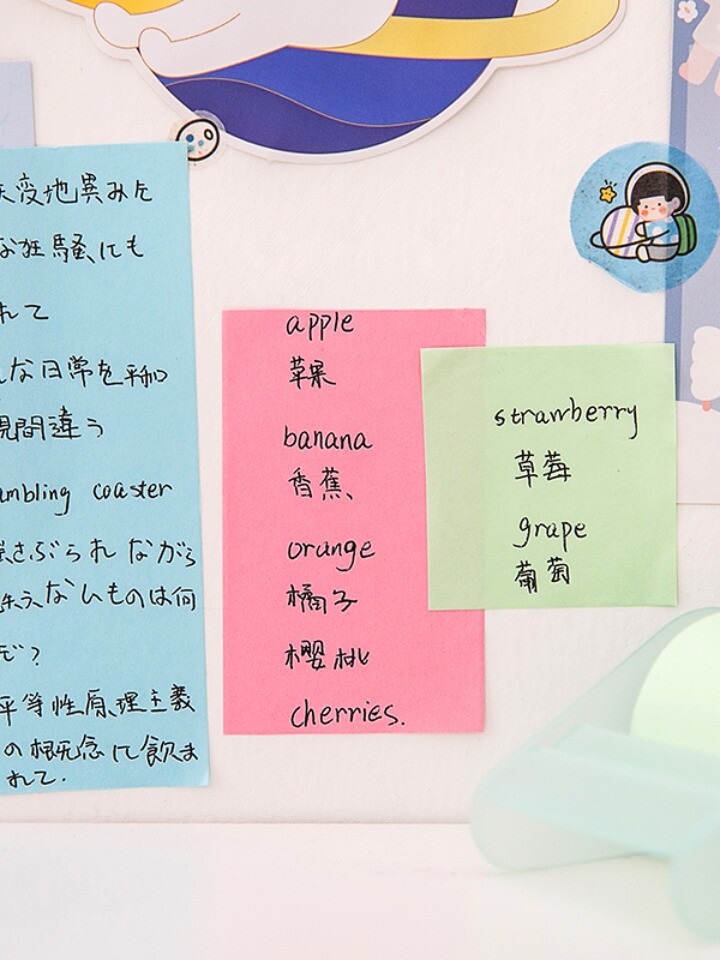 変地異みた
な狂騒にも
れて
な日常を平和
間違う
mbling coaster
さぶられながら
ないものは何
だ?
平等性原理主義
の概念に飲ま
れて.
apple
苹果
banana
香蕉、
orange
橘子
樱桃
cherries.
strawberry
草莓
grape
葡萄